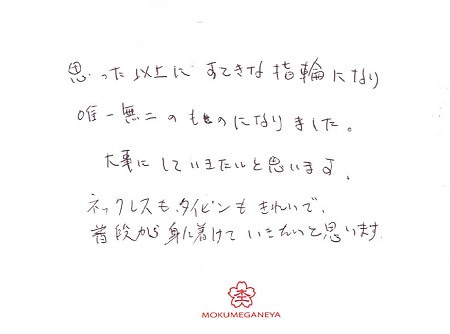 思った以上に すてきな指輪になり
唯一無二のものになりました。
大事にしていきたいと思います。
ネックレスも、タイピンも きれいで、
普段から身に着けていきたいと思います。
杢
MOKUMEGANEYA